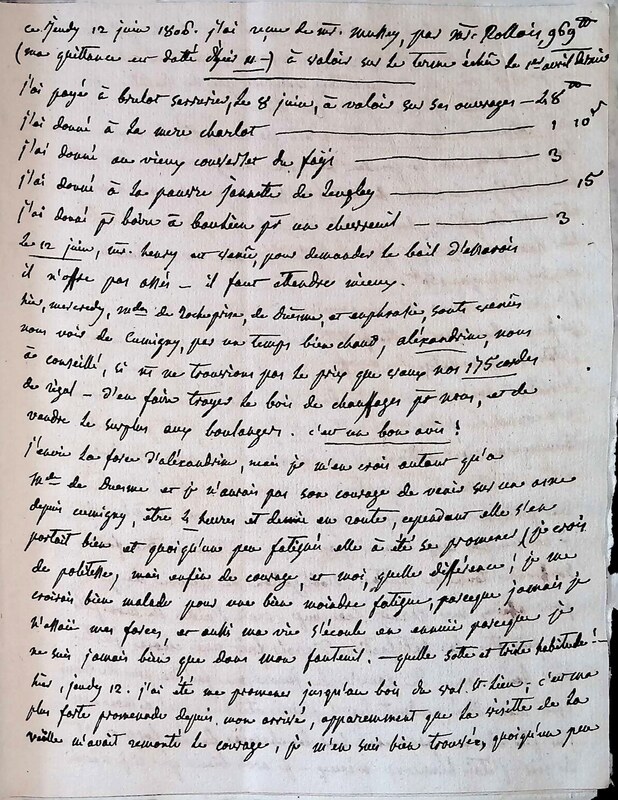 ce jeudy 12 juin 1806. j'ai reçue de mr. mussey, par mr. Rollois, 969 tt
(ma quittance en datte d'hier 11 -) à valoir sur le terme échû le 1er avril dernier
j'ai payé à brulot serrurier, le 8 juin, à valoir sur ses ouvrages - 48 tt
j'ai donné à la mere charlot — 1 10 s
j'ai donné au vieux couvertet du fays — 3
j'ai donné à la pauvre jannette de Leugley — 15
j'ai doné pr boire à bonhême pr un chevreuil — 3
Le 12 juin, mr. henry est venû, pour demander le bail d'
il n'offre pas assés - il faut attendre mieux.
hier, mercredy, mdes de rocheprise, de Duesme, et euphrasie, sonts venûs
nous voir de Cumigny, par un temps bien chaud, aléxandrine, nous
à conseillé, si ns ne trouvions pas le prix que vaux nos 175 cordes
de rigal - d'en faire troyer le bois de chauffages pr nous, et de
vendre le surplus aux boulangers. c'est un bon avis!
j'envie la force d'aléxandrine, mais je m'en crois autant qu'a
Mde de Duesme et je n'aurais pas son courage de venir sur un asne
depuis cumigny, être 4 heures et demie en route, cependant elle s'en
portait bien et quoiqu'un peu fatiguée elle à été se promener (je crois
de politesse, mais enfin de courage, et moi, quelle différence! je me
croirais bien malade pour une bien moindre fatigue, parceque jamais je
n'essaie mes forces, et aussi ma vie s'écoule en ennuie parceque je
ne suis jamais bien que dans mon fauteuil. - quelle sotte et triste habitude! -
hier, jeudy 12. j'ai été me promener jusqu'au bois du val. St. Lieu; c'est ma
plus forte promenade depuis mon arrivé, apparemment que la visitte de la
veille m'avait remonté le courage, je m'en suis bien trouvée, quoiqu'un peu